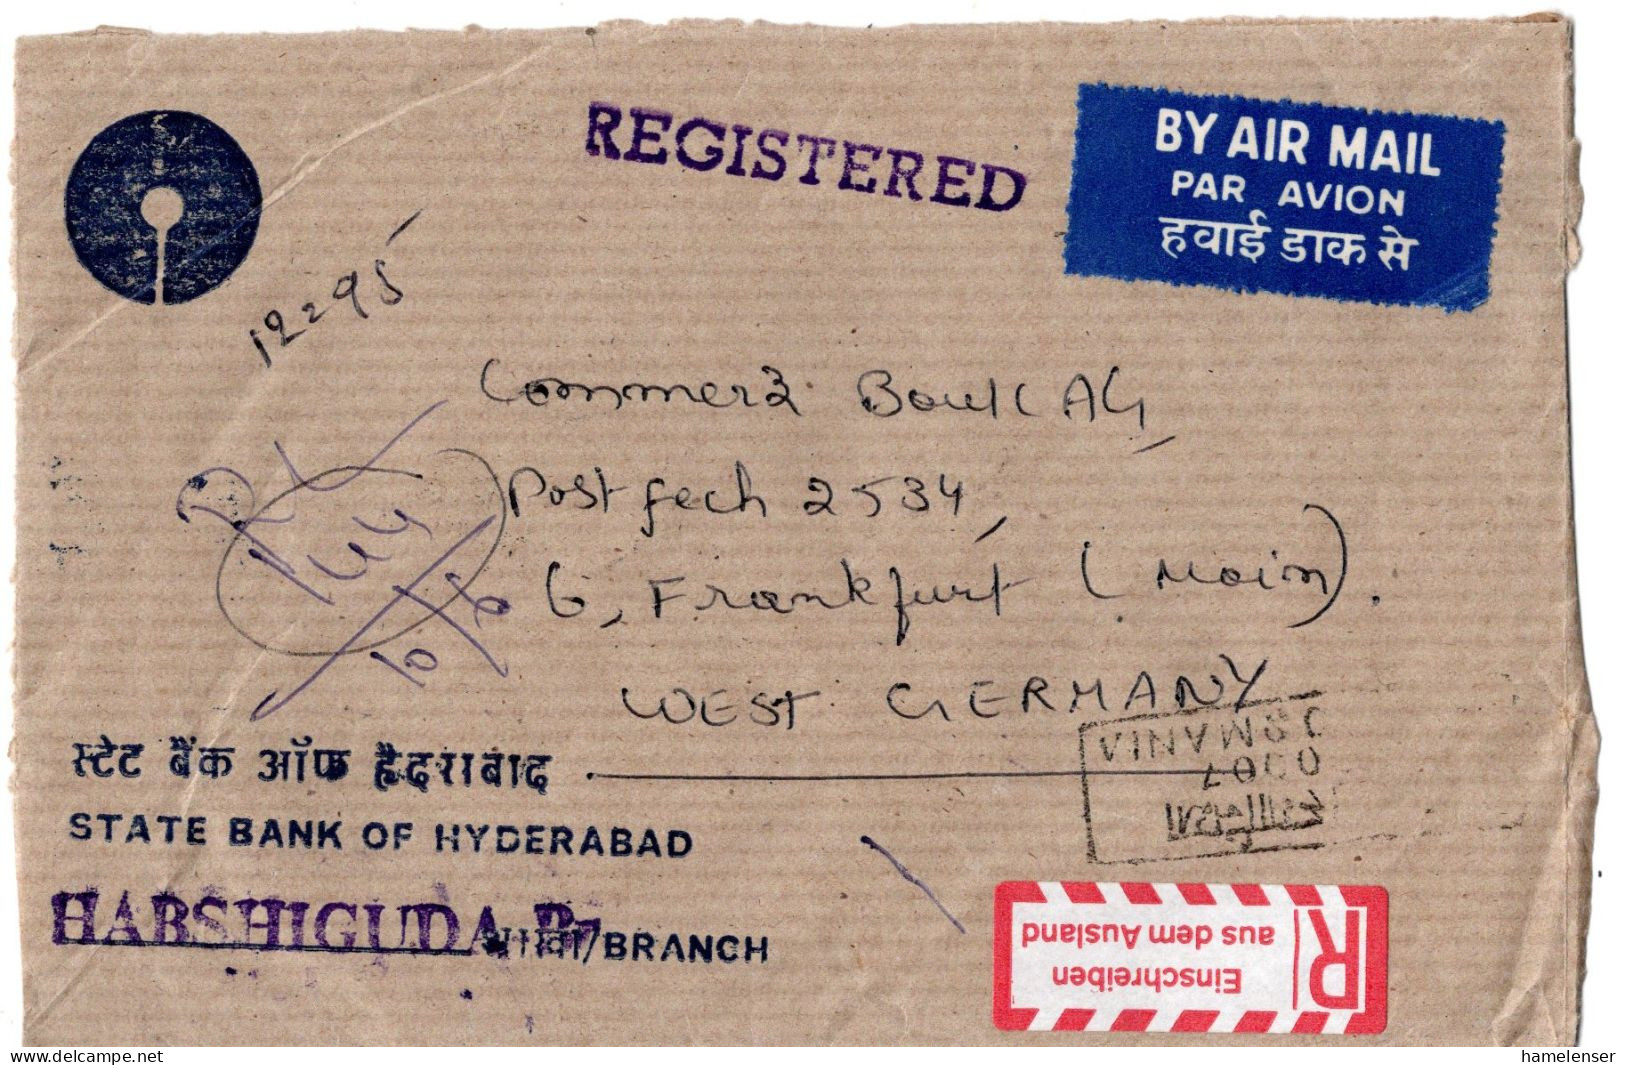 REGISTERED
BY AIR MAIL
PAR AVION
हवाई डाक से
12=95
Commerz Bank AG,
Postfech 2534,
6, Frankfurt (Main).
WEST GERMANY
स्टेट बैंक ऑफ हैदराबाद
STATE BANK OF HYDERABAD
HABSHIGUDA
शाखा/BRANCH
R
Einschreiben
aus dem Ausland
www.delcampe.net
hamelenser